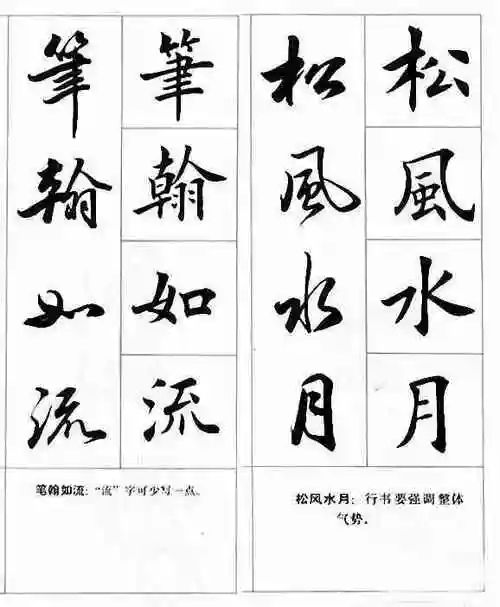 松風水月
松風水月
松风水月：行书要强调整体
气势。
筆翰如流
筆翰如流
笔翰如流：“流”字可少写一点。